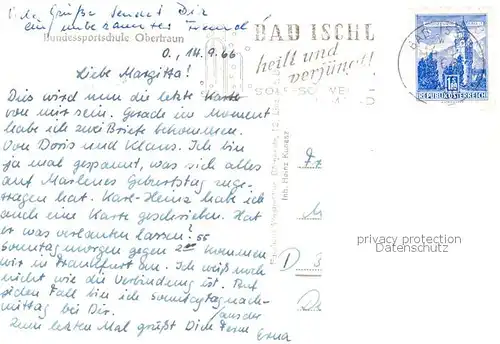 Viele Grüße sendet Dir
ein unbekannter Freund
Bundessportschule Obertraun
O., 14.9.66
Liebe Margitta!
Dies wird nun die letzte Karte
von mir sein. Gerade im Moment
habe ich zwei Briefe bekommen.
Von Doris und Klaus. Ich bin
ja mal gespannt, was sich alles
auf Marlenes Geburtstag zuge-
tragen hat. Karl-Heinz habe ich
auch eine Karte geschrieben. Hat
er was verlauten lassen?
Sonntag morgen gegen 2⁵⁵ kommen
wir in Frankfurt an. Ich weiß noch
nicht wie die Verbindung ist. Auf
jeden Fall bin ich Sonntagnach-
mittag bei Dir.
Zum letzten Mal grüßt Dich Deine Erna
BAD ISCHL
heilt und
verjüngt!
BAD
REPUBLIK ÖSTERREICH
Inh. Heinz
privacy protection
Datenschutz
D